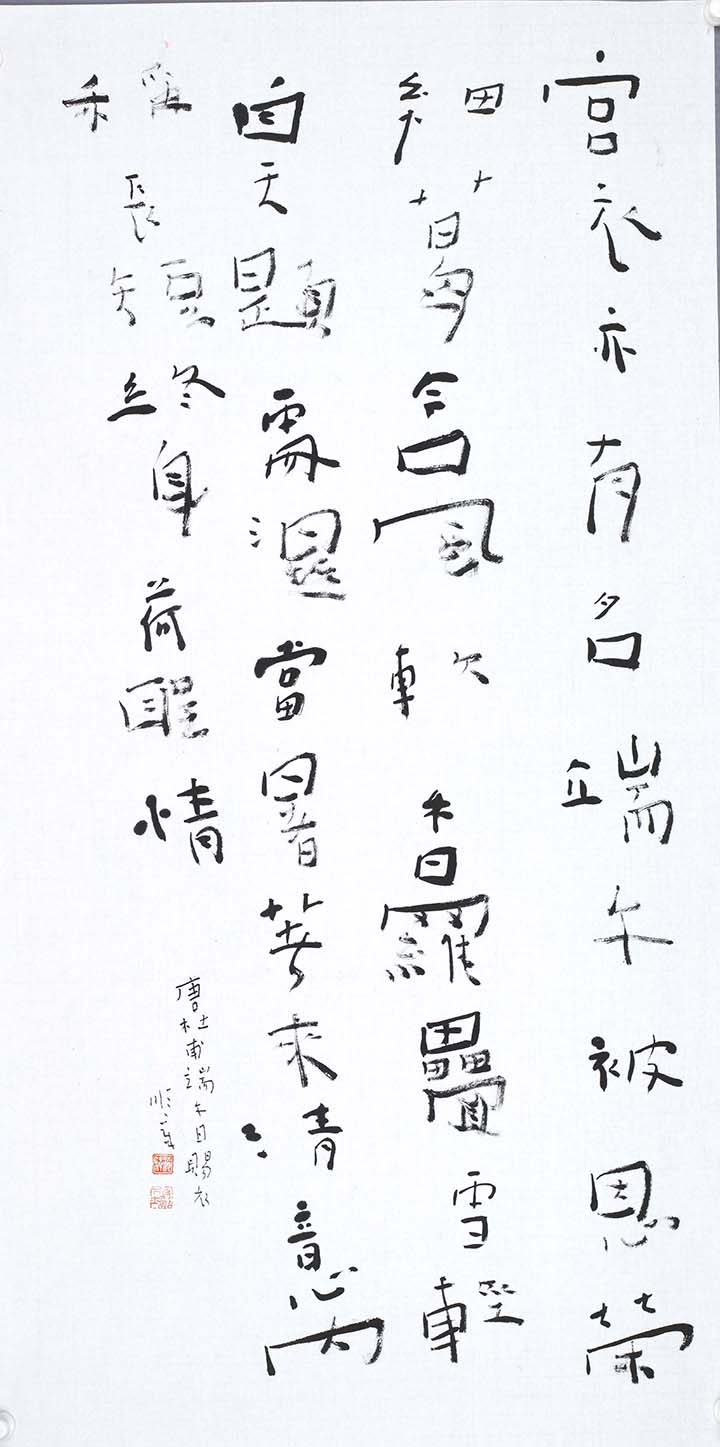 宮衣亦有名端午被恩榮
細葛含風軟香羅疊雪輕
自天題需濕當暑著來清意內
稱長短終身荷聖情
唐杜甫端午日賜衣
順